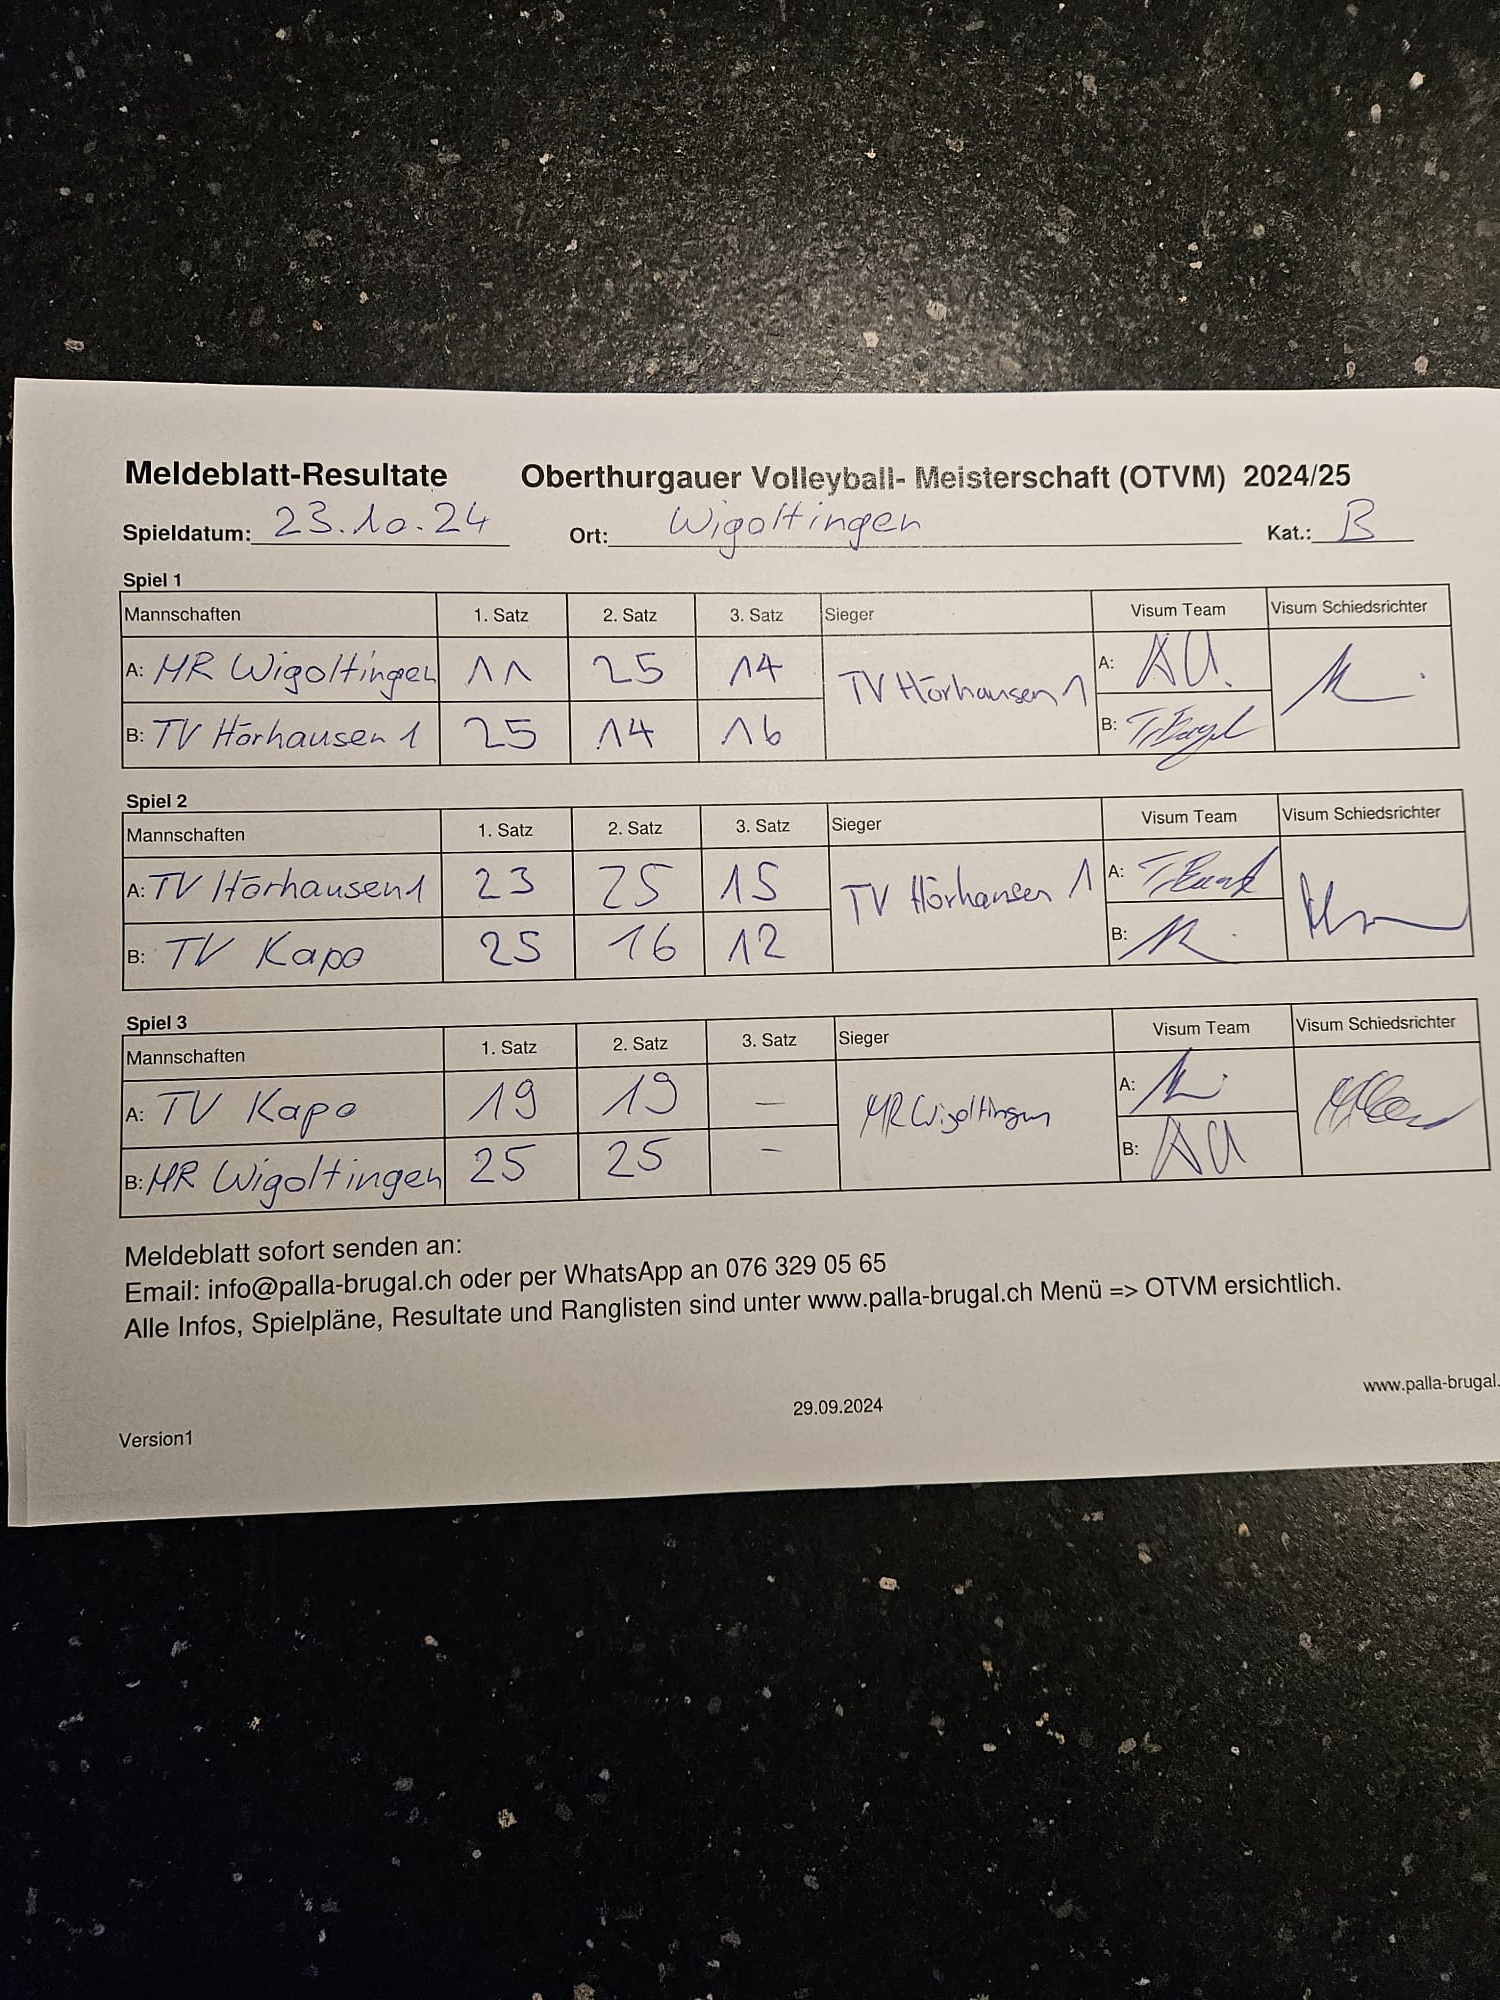 Meldeblatt-Resultate Oberthurgauer Volleyball- Meisterschaft (OTVM) 2024/25
Spieldatum: 23.10.24 Ort: Wigoltingen Kat.: B
Spiel 1
Mannschaften 1. Satz 2. Satz 3. Satz Sieger Visum Team Visum Schiedsrichter
A: MR Wigoltingen 11 25 14 TV Hörhausen 1 A: AU.
B: TV Hörhausen 1 25 14 16 B:
Spiel 2
Mannschaften 1. Satz 2. Satz 3. Satz Sieger Visum Team Visum Schiedsrichter
A: TV Hörhausen 1 23 25 15 TV Hörhausen 1 A:
B: TV Kapo 25 16 12 B:
Spiel 3
Mannschaften 1. Satz 2. Satz 3. Satz Sieger Visum Team Visum Schiedsrichter
A: TV Kapo 19 19 – MR Wigoltingen A:
B: MR Wigoltingen 25 25 – B: AU
Meldeblatt sofort senden an:
Email: info@palla-brugal.ch oder per WhatsApp an 076 329 05 65
Alle Infos, Spielpläne, Resultate und Ranglisten sind unter www.palla-brugal.ch Menü => OTVM ersichtlich.
www.palla-brugal.
29.09.2024
Version1